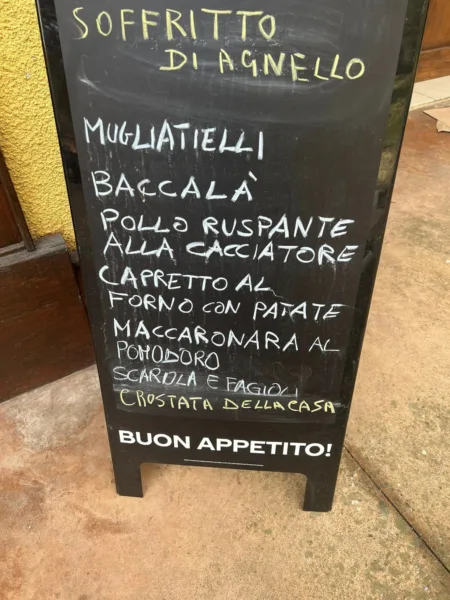 SOFFRITTO
DI AGNELLO
MUGLIATIELLI
BACCALÀ
POLLO RUSPANTE
ALLA CACCIATORE
CAPRETTO AL
FORNO CON PATATE
MACCARONARA AL
POMODORO
SCAROLA E FAGIOLI
CROSTATA DELLA CASA
BUON APPETITO!